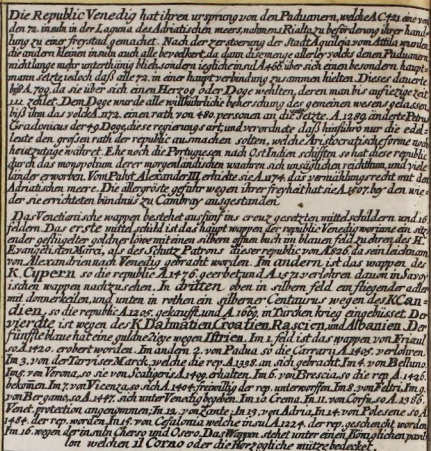 Die Republic Venedig hat ihren ursprung von den Paduanern, welche A.C. 421. eine von
den 72. insuln in der Laguna des Adriatischen meers, nahmens Rialta, zu beförderung ihrer hand-
lung zu einer freystad gemachet. Nach der zerstoerung der stadt Aquileja vom Attila wurden
die andern kleinen insuln auch alle bevölkert, da dann diesemenge allerley volcks denen Paduanern
nicht lange mehr unterthänig blieb, sondern iegliche insul A. 456. über sich einen besondern haupt-
mann setzte, iedoch daß alle 72. in einer haupt verbindung zusammen hielten. Dieses dauerte
biß A. 709. da sie über sich einen Herzog oder Doge wehlten, deren man bis auf iezige zeit
111. zehlet. Dem Doge wurde alle willkührliche beherschung des gemeinen wesens gelassen,
biß ihm das volck A. 1172. einen rath von 480. personen an die seite setzte. A. 1289. änderte Petrus
Gradonicus der 49. Doge diese regierungs art, und verordnete daß hinführo nur die edel-
leute den großen rath der republic ausmachen solten, welche Aristocratische forme noch
heut zutage währet. Ehe noch die Portugiesen nach Ost Indien schifften, so hat diese republic
durch das monopolium derer morgenlandischen waahren, gar unsäglichen reichthum, und viele
länder erworben. Vom Pabst Alexander III. erhielte sie A. 1174. das vermählungs recht mit dem
Adriatischen meere. Die allergröste gefahr wegen ihrer freyheit hat sie A. 1507. bey den wie-
der sie errichteten bündnüs zu Cambray ausgestanden.
Das Venetianische wappen bestehet aus fünf ins creuz gesetzten mittel schildern und 16.
feldern. Das erste mittel schild ist das haupt wappen der republic Venedig worinne ein sitz-
ender geflügelter goldner löwe mit einem silbern offnen buch im blauen feld zu ehren des H.
Evangelisten Marci, als des Schutz Patrons dieser republic, von A. 826. da sein leichnam
von Alexandrien nach Venedig gebracht worden. Im andern ist das wappen des
K. Cypern, so die republic A. 1476. geerbet und A. 1571. verlohren davon im Savoy-
schen wappen nachzusehen. In dritten oben in silbern feld ein fliegender adler
mit donnerkeilen, und unten in rothen ein silberner Centaurus wegen des K. Can-
dien, so die republic A. 1205. gekaufft, und A. 1669. im Türcken krieg eingebüsset. Der
vierdte ist wegen des K. Dalmatien, Croatien, Rascien, und Albanien. Der
fünfte blaue hat eine guldne ziege wegen Istrien. Im 1. feld ist das wappen von Friaul,
so A. 1420. erobert worden. Im andern 2. von Padua, so die Carrerii A. 1405. verlohren.
Im 3. von der Tarviser Marck, welche die rep. A. 1338. an sich gebracht. Im 4. von Belluno.
Im 5. von Verona, so sie von Scaligeris A. 1409. erhalten. Im 6. von Brescia, so die rep. A. 1426.
bekomen. Im 7. von Vicenza, so sich A. 1404. freiwillig der rep. unterworffen. Im 8. von Feltri. Im 9.
von Bergamo, so A. 1447. sich unter Venedig begeben. Im 10. Crema. Im 11. von Corfu, so A. 1386.
Venet. protection angenommen; In 12. von Zante; In 13. von Adria. Im 14. von Polesene so A.
1484. der rep. worden. In 15. von Cefalonia welche insul A. 1224. der rep. geschenckt worden.
Im 16. wegen der insuln Cherso und Osero. Das Wappen stehet unter einen Königlichen pavil-
lon welchen il Corno oder die Herzogliche mütze bedecket.